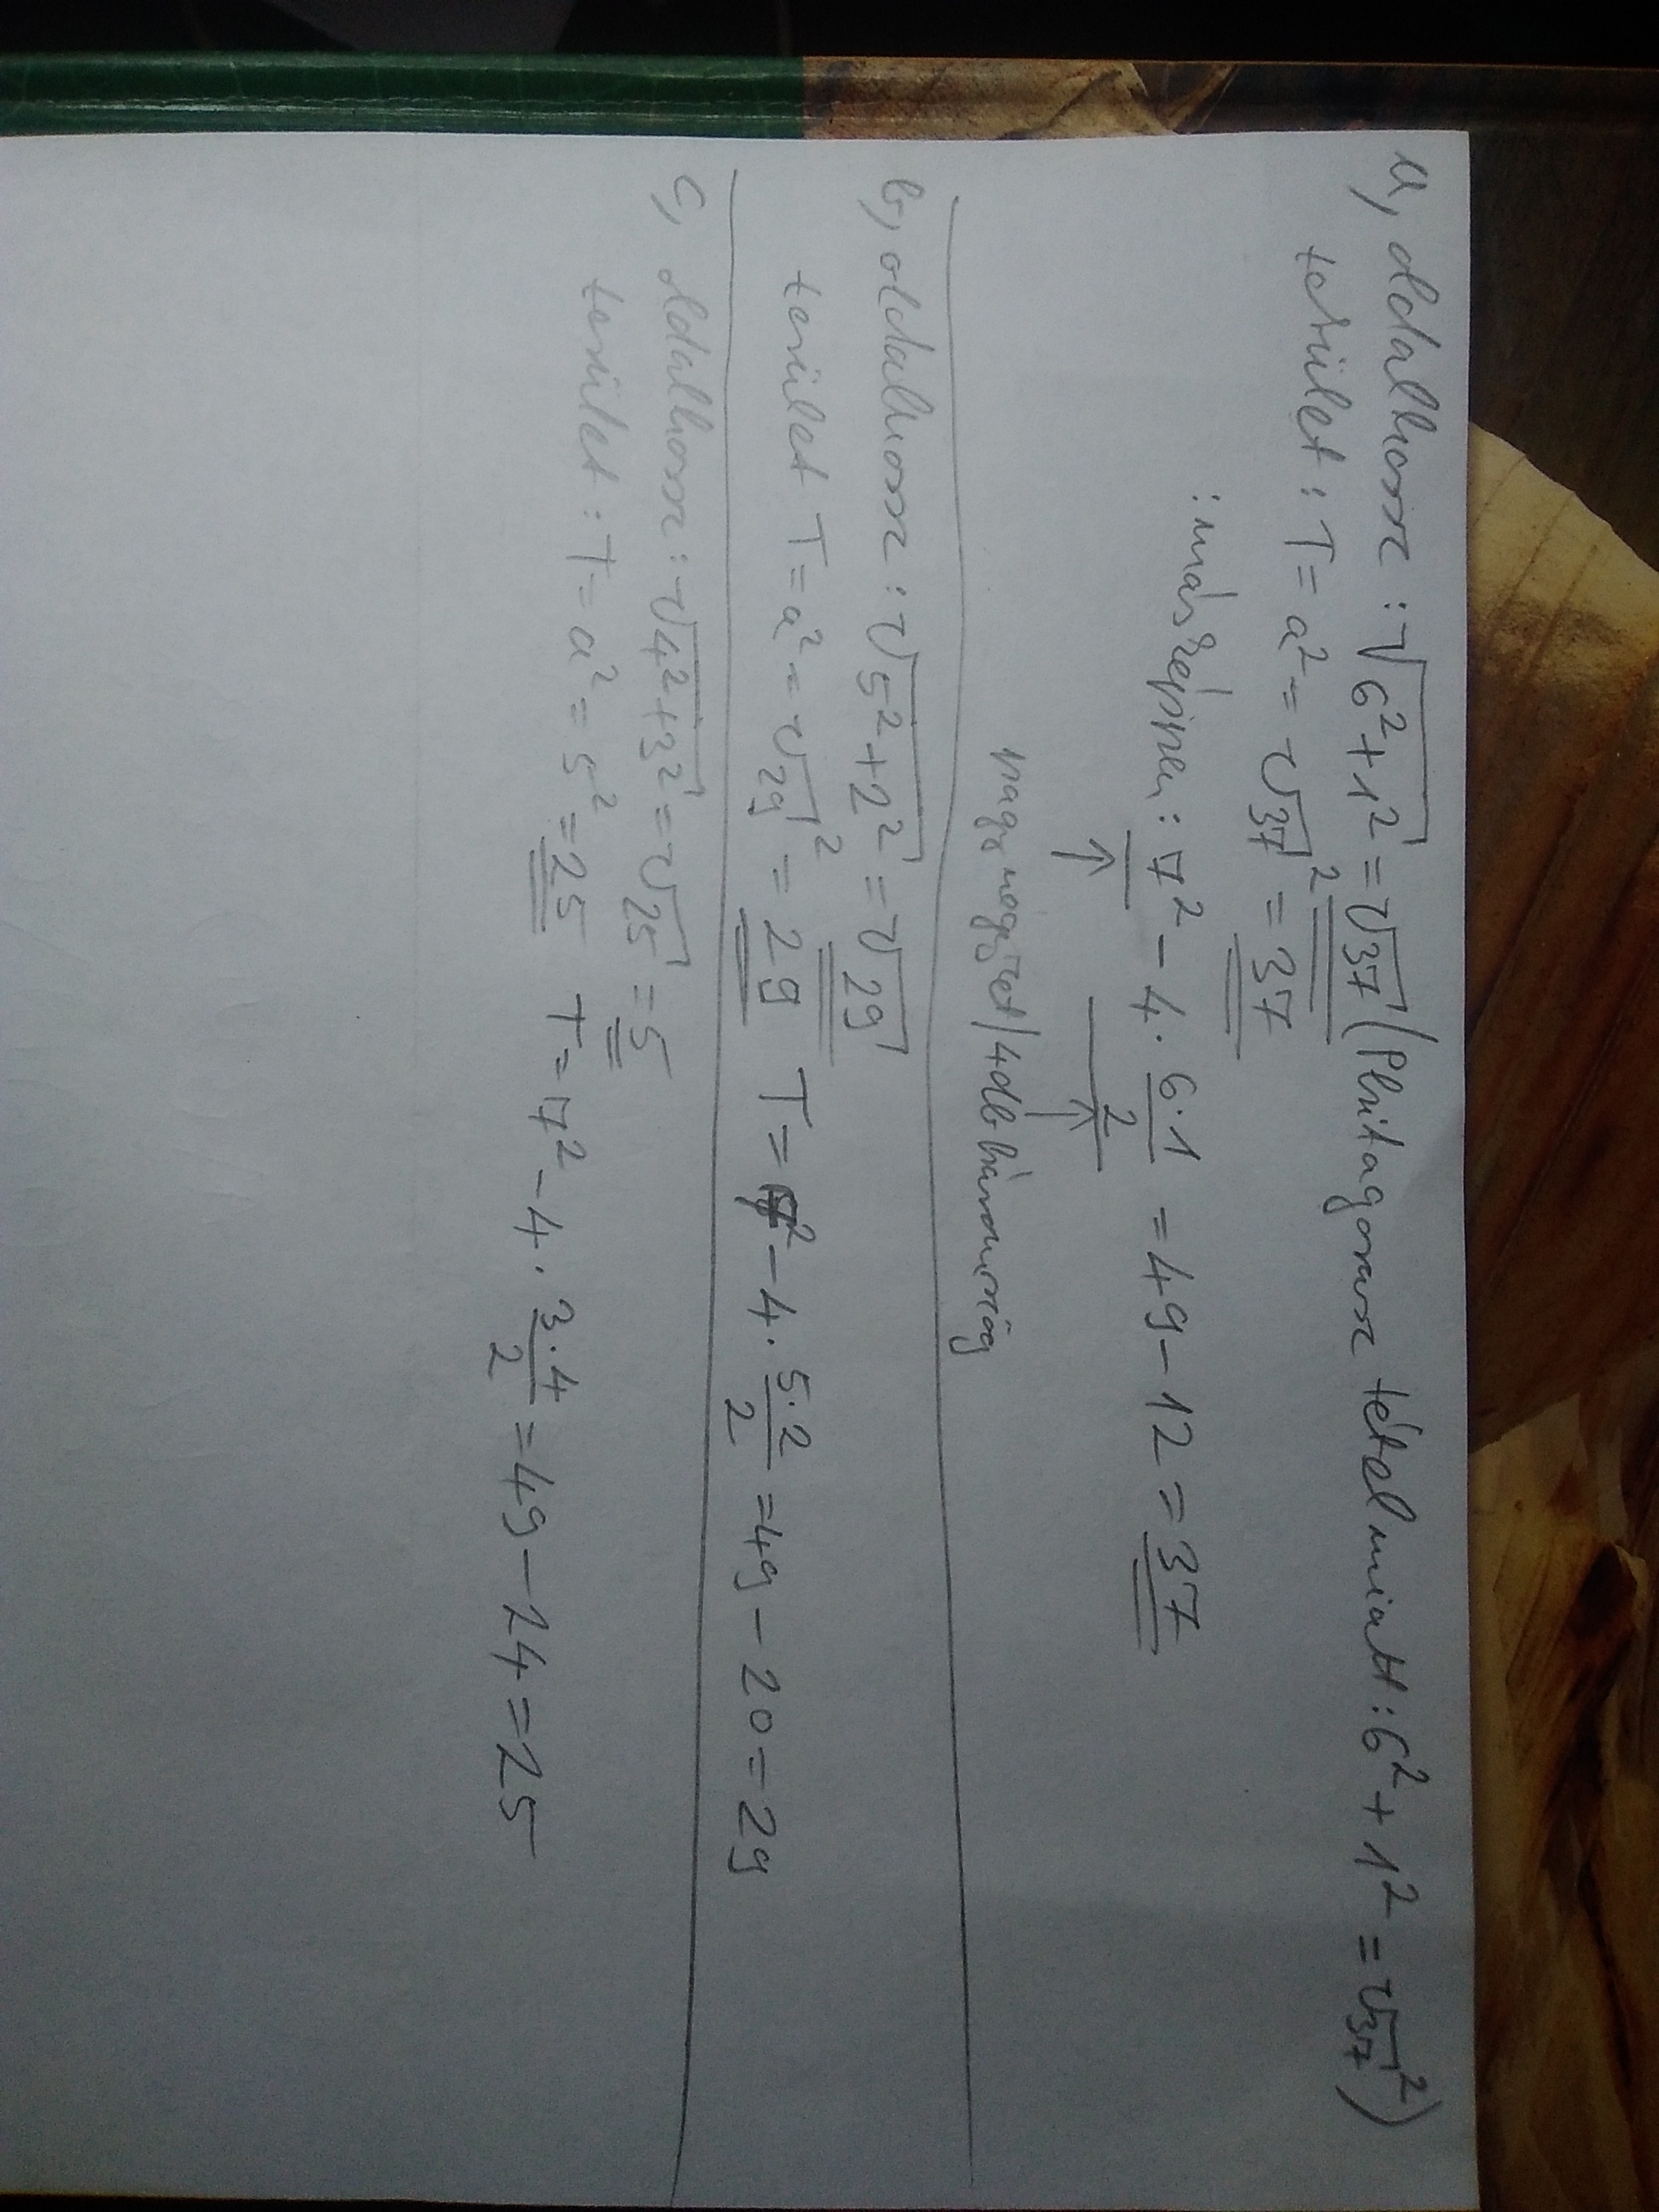 a, oldalhossz: √6²+1² = √37 (Phitagorasz tétel miatt: 6²+1² = √37²)
terület: T = a² = √37² = 37
: másképpen: 7² - 4 · 6·1/2 = 49 - 12 = 37
↑ ↑
nagy négyzet / 4db háromszög
b, oldalhossz: √5²+2² = √29
terület T = a² = √29² = 29 T = 7² - 4 · 5·2/2 = 49 - 20 = 29
c, oldalhossz: √4²+3² = √25 = 5
terület: T = a² = 5² = 25 T = 7² - 4 · 3·4/2 = 49 - 24 = 25